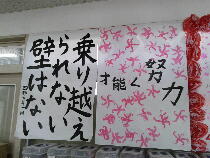 乗り越え
られない
壁はない
努力
才能く